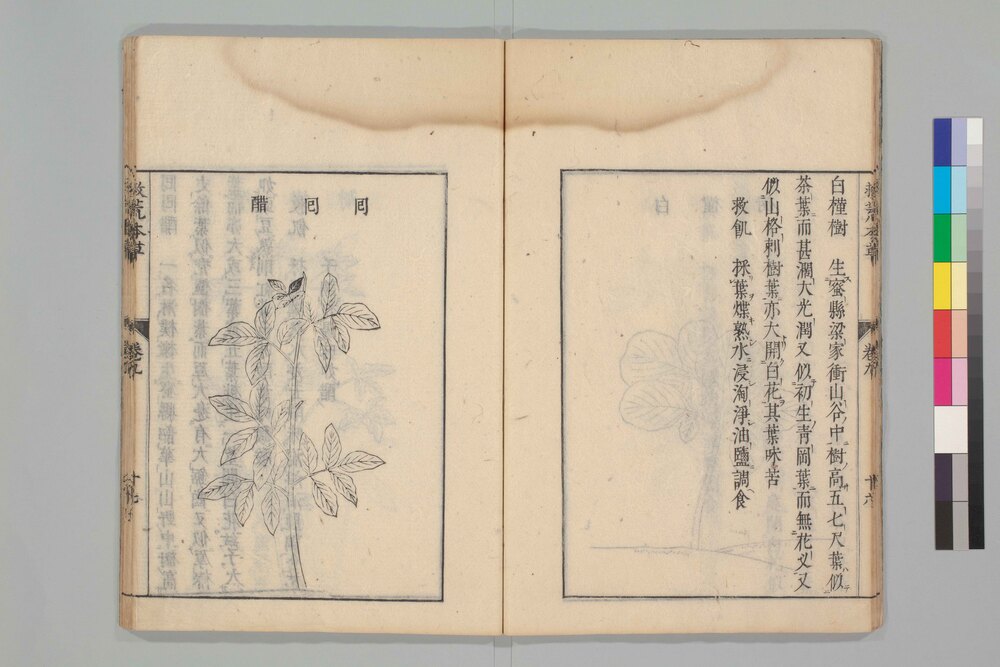 救荒本草
卷九
廿六
白槿樹　生密縣梁家衝山谷中樹高五七尺葉似
茶葉而甚濶大光潤又似初生青岡葉而無花叉又
似山格剌樹葉亦大開白花其葉味苦
救飢　採葉煠熟水浸淘淨油鹽調食
回回醋
救荒本草
卷九